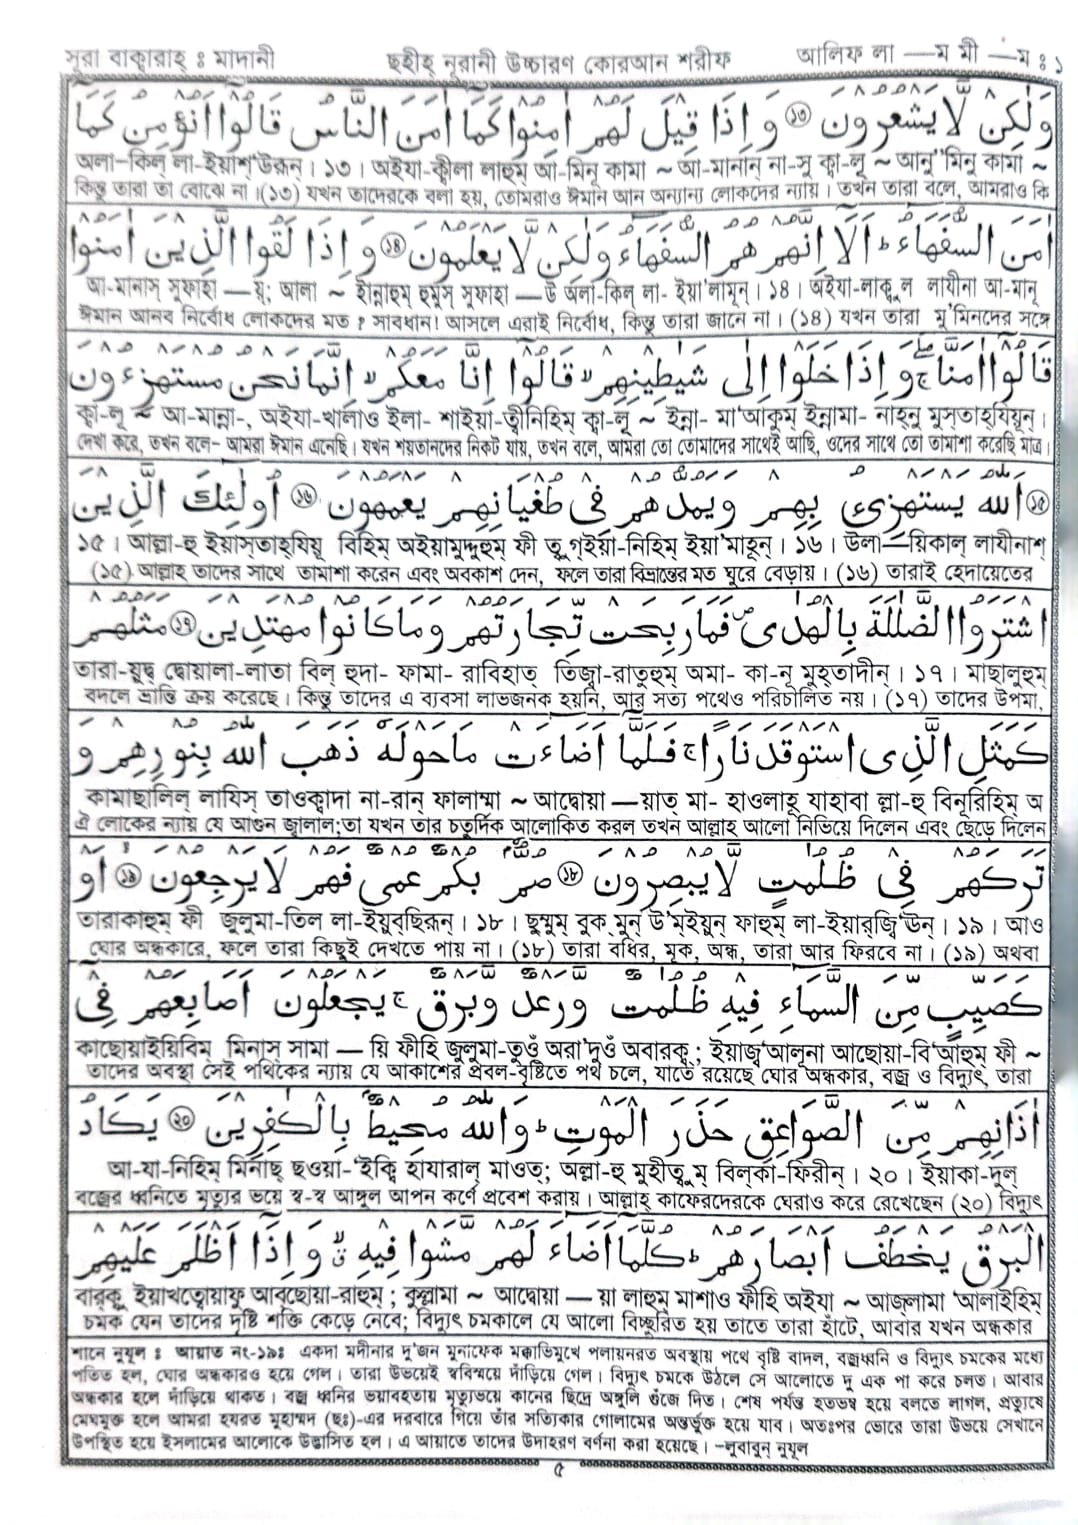 সূরা বাক্বারাহ্ ঃ মাদানী ছহীহ্ নূরানী উচ্চারণ কোরআন শরীফ আলিফ লা —ম মী —ম ঃ ১
وَلٰكِنْ لَّا يَشْعُرُوْنَ ۝١٣ وَ اِذَا قِيْلَ لَهُمْ اٰمِنُوْا كَمَآ اٰمَنَ النَّاسُ قَالُوْٓا اَنُؤْمِنُ كَمَآ
অলা-কিল্ লা-ইয়াশ্‌'উরূন্। ১৩। অইযা-ক্বীলা লাহুম্ আ-মিনূ কামা ~ আ-মানান্ না-সু ক্বা-লূ ~ আনু''মিনু কামা ~
কিন্তু তারা তা বোঝে না।(১৩) যখন তাদেরকে বলা হয়, তোমরাও ঈমান আন অন্যান্য লোকদের ন্যায়। তখন তারা বলে, আমরাও কি
اٰمَنَ السُّفَهَآءُ ؕ اَلَآ اِنَّهُمْ هُمُ السُّفَهَآءُ وَلٰكِنْ لَّا يَعْلَمُوْنَ ۝١٤ وَ اِذَا لَقُوا الَّذِيْنَ اٰمَنُوْا
আ-মানাস্ সুফাহা —য়্; আলা ~ ইন্নাহুম্ হুমুস্ সুফাহা —উ অলা-কিল্ লা- ইয়া'লামূন্। ১৪। অইযা-লাক্বুল লাযীনা আ-মানূ
ঈমান আনব নির্বোধ লোকদের মত ? সাবধান! আসলে এরাই নির্বোধ, কিন্তু তারা জানে না। (১৪) যখন তারা মু'মিনদের সঙ্গে
قَالُوْٓا اٰمَنَّا ۚ وَ اِذَا خَلَوْا اِلٰى شَيٰطِيْنِهِمْ ۙ قَالُوْٓا اِنَّا مَعَكُمْ ۙ اِنَّمَا نَحْنُ مُسْتَهْزِءُوْنَ
ক্বা-লূ ~ আ-মান্না-, অইযা-খালাও ইলা- শাইয়া-ত্বীনিহিম্ ক্বা-লূ ~ ইন্না- মা'আকুম্ ইন্নামা- নাহ্‌নু মুস্‌তাহ্‌যিয়ূন্।
দেখা করে, তখন বলে- আমরা ঈমান এনেছি। যখন শয়তানদের নিকট যায়, তখন বলে, আমরা তো তোমাদের সাথেই আছি, ওদের সাথে তো তামাশা করেছি মাত্র।
۝١٥ اَللّٰهُ يَسْتَهْزِئُ بِهِمْ وَيَمُدُّهُمْ فِىْ طُغْيَانِهِمْ يَعْمَهُوْنَ ۝١٦ اُولٰٓئِكَ الَّذِيْنَ
১৫। আল্লা-হু ইয়াস্‌তাহ্‌যিয়ু বিহিম্ অইয়ামুদ্দুহুম্ ফী ত্বুগ্‌ইয়া-নিহিম্ ইয়া'মাহূন্। ১৬। উলা—য়িকাল্ লাযীনাশ্
(১৫) আল্লাহ তাদের সাথে তামাশা করেন এবং অবকাশ দেন, ফলে তারা বিভ্রান্তের মত ঘুরে বেড়ায়। (১৬) তারাই হেদায়েতের
اشْتَرَوُا الضَّلٰلَةَ بِالْهُدٰى ۪ فَمَا رَبِحَتْ تِّجَارَتُهُمْ وَمَا كَانُوْا مُهْتَدِيْنَ ۝١٧ مَثَلُهُمْ
তারা-য়ুদ্ব্ দ্বোয়ালা-লাতা বিল্ হুদা- ফামা- রাবিহাত্ তিজ্বা-রাতুহুম্ অমা- কা-নূ মুহ্‌তাদীন্। ১৭। মাছালুহুম্
বদলে ভ্রান্তি ক্রয় করেছে। কিন্তু তাদের এ ব্যবসা লাভজনক হয়নি, আর সত্য পথেও পরিচালিত নয়। (১৭) তাদের উপমা,
كَمَثَلِ الَّذِى اسْتَوْقَدَ نَارًا ۚ فَلَمَّآ اَضَآءَتْ مَاحَوْلَهٗ ذَهَبَ اللّٰهُ بِنُوْرِهِمْ وَ
কামাছালিল্ লাযিস্ তাওক্বাদা না-রান্ ফালাম্মা ~ আদ্বোয়া —য়াত্ মা- হাওলাহূ যাহাবা ল্লা-হু বিনূরিহিম্ অ
ঐ লোকের ন্যায় যে আগুন জ্বালাল;তা যখন তার চতুর্দিক আলোকিত করল তখন আল্লাহ আলো নিভিয়ে দিলেন এবং ছেড়ে দিলেন
تَرَكَهُمْ فِىْ ظُلُمٰتٍ لَّا يُبْصِرُوْنَ ۝١٨ صُمٌّۢ بُكْمٌ عُمْىٌ فَهُمْ لَا يَرْجِعُوْنَ ۝١٩ اَوْ
তারাকাহুম্ ফী জুলুমা-তিল লা-ইয়ুব্‌ছিরূন্। ১৮। ছুম্মুম্ বুক্‌মুন্ উ'ম্‌ইয়ুন্ ফাহুম্ লা-ইয়ার্‌জ্বি'ঊন্। ১৯। আও
ঘোর অন্ধকারে, ফলে তারা কিছুই দেখতে পায় না। (১৮) তারা বধির, মূক, অন্ধ, তারা আর ফিরবে না। (১৯) অথবা
كَصَيِّبٍ مِّنَ السَّمَآءِ فِيْهِ ظُلُمٰتٌ وَّرَعْدٌ وَّبَرْقٌ ۚ يَجْعَلُوْنَ اَصَابِعَهُمْ فِىْٓ
কাছোয়াইয়িবিম্ মিনাস্ সামা — য়ি ফীহি জুলুমা-তুওঁ অরা'দুওঁ অবারক্ব; ইয়াজ্ব্'আলূনা আছোয়া-বি'আহুম্ ফী ~
তাদের অবস্থা সেই পথিকের ন্যায় যে আকাশের প্রবল-বৃষ্টিতে পথ চলে, যাতে রয়েছে ঘোর অন্ধকার, বজ্র ও বিদ্যুৎ, তারা
اٰذَانِهِمْ مِّنَ الصَّوَاعِقِ حَذَرَ الْمَوْتِ ؕ وَاللّٰهُ مُحِيْطٌۢ بِالْكٰفِرِيْنَ ۝٢٠ يَكَادُ
আ-যা-নিহিম্ মিনাছ্ ছওয়া-'ইক্বি হাযারাল্ মাওত্; অল্লা-হু মুহীত্বুম্ বিল্‌কা-ফিরীন্। ২০। ইয়াকা-দুল্
বজ্রের ধ্বনিতে মৃত্যুর ভয়ে স্ব-স্ব আঙ্গুল আপন কর্ণে প্রবেশ করায়। আল্লাহ্ কাফেরদেরকে ঘেরাও করে রেখেছেন (২০) বিদ্যুৎ
الْبَرْقُ يَخْطَفُ اَبْصَارَهُمْ ؕ كُلَّمَآ اَضَآءَ لَهُمْ مَّشَوْا فِيْهِ ۙ وَ اِذَآ اَظْلَمَ عَلَيْهِمْ
বারক্বু ইয়াখ্‌ত্বোয়াফু আব্‌ছোয়া-রাহুম্ ; কুল্লামা ~ আদ্বোয়া — য়া লাহুম্ মাশাও ফীহি অইযা ~ আজ্‌লামা 'আলাইহিম্
চমক যেন তাদের দৃষ্টি শক্তি কেড়ে নেবে; বিদ্যুৎ চমকালে যে আলো বিচ্ছুরিত হয় তাতে তারা হাঁটে, আবার যখন অন্ধকার
শানে নুযূল ঃ আয়াত নং-১৯ঃ একদা মদীনার দু'জন মুনাফেক মক্কাভিমুখে পলায়নরত অবস্থায় পথে বৃষ্টি বাদল, বজ্রধ্বনি ও বিদ্যুৎ চমকের মধ্যে
পতিত হল, ঘোর অন্ধকারও হয়ে গেল। তারা উভয়েই সবিস্ময়ে দাঁড়িয়ে গেল। বিদ্যুৎ চমকে উঠলে সে আলোতে দু এক পা করে চলত। আবার
অন্ধকার হলে দাঁড়িয়ে থাকত। বজ্র ধ্বনির ভয়াবহতায় মৃত্যুভয়ে কানের ছিদ্রে অঙ্গুলি গুঁজে দিত। শেষ পর্যন্ত হতভম্ব হয়ে বলতে লাগল, প্রত্যুষে
মেঘমুক্ত হলে আমরা হযরত মুহাম্মদ (ছঃ)-এর দরবারে গিয়ে তাঁর সত্যিকার গোলামের অন্তর্ভুক্ত হয়ে যাব। অতঃপর ভোরে তারা উভয়ে সেখানে
উপস্থিত হয়ে ইসলামের আলোকে উদ্ভাসিত হল। এ আয়াতে তাদের উদাহরণ বর্ণনা করা হয়েছে। –লুবাবুন্ নুযূল
৫